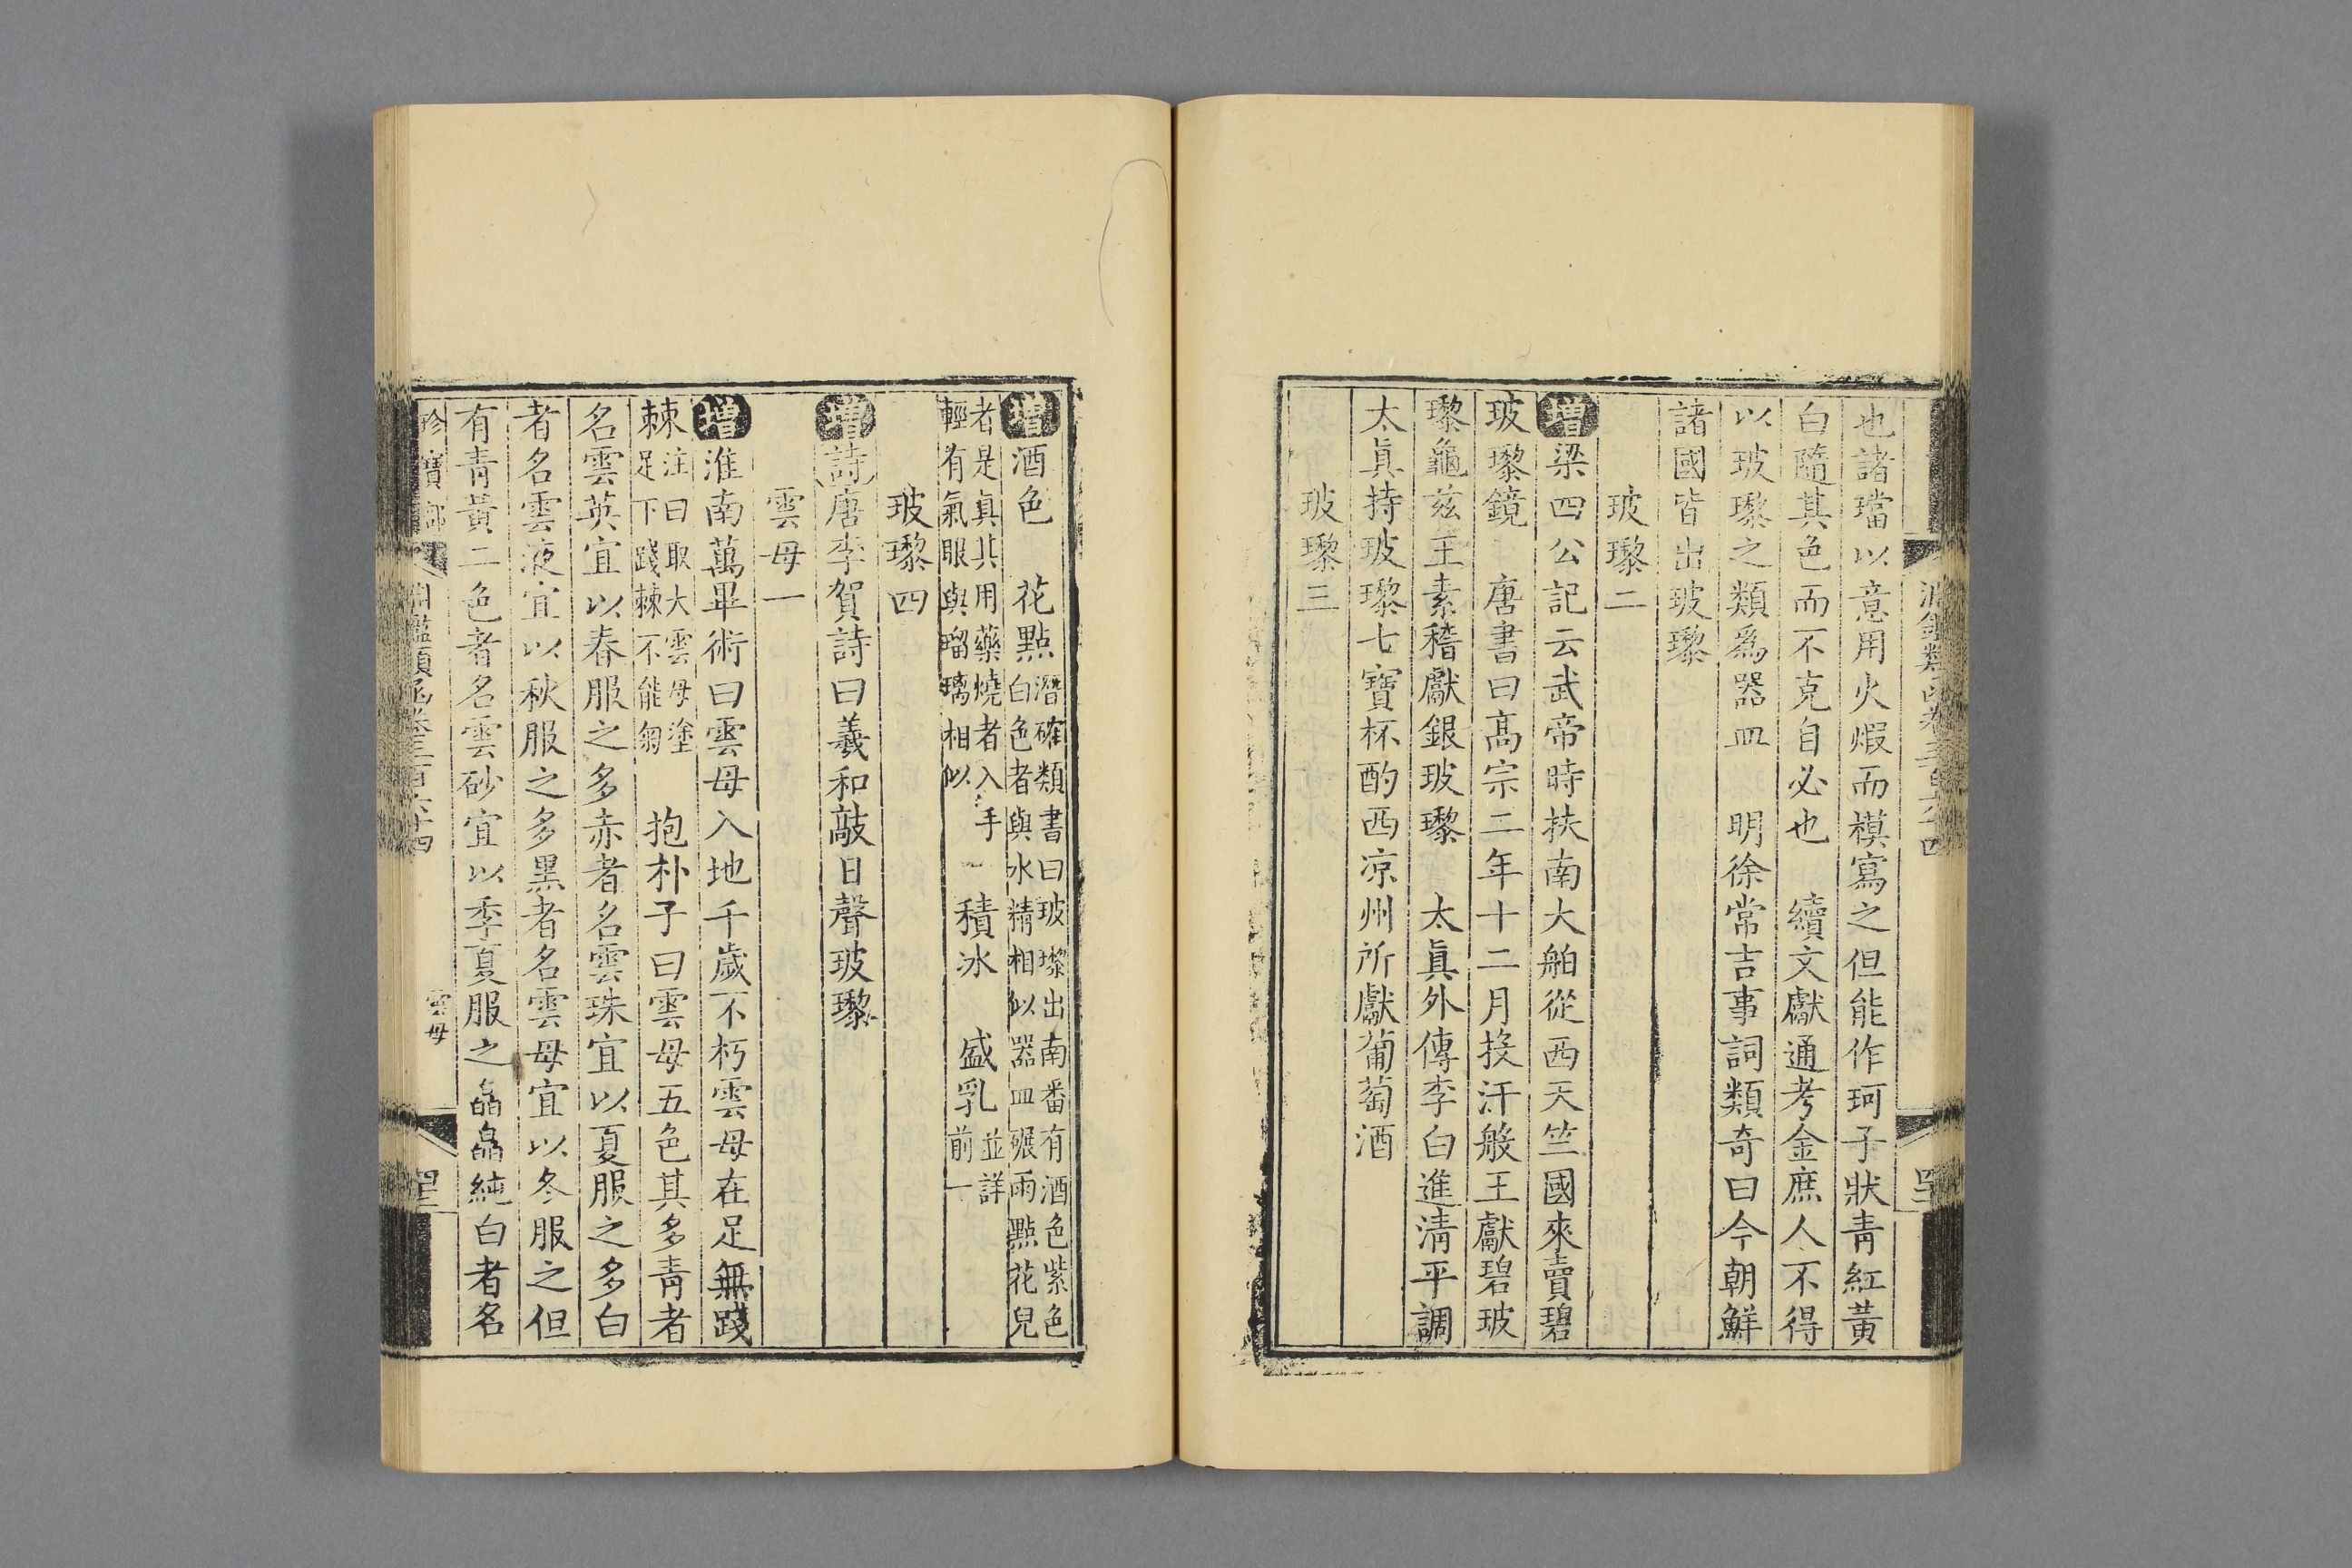 也諸璫以意用火煆而模寫之但能作珂子狀青紅黃
白隨其色而不克自必也　續文獻通考金庶人不得
以玻瓈之類爲器皿　明徐常吉事詞類奇曰今朝鮮
諸國皆出玻瓈
玻瓈二
增梁四公記云武帝時扶南大舶從西天竺國來賣碧
玻瓈鏡　唐書曰高宗二年十二月投汗般王獻碧玻
瓈龜茲王素稽獻銀玻瓈　太眞外傳李白進淸平調
太眞持玻瓈七寶杯酌西凉州所獻葡萄酒
玻瓈三
增酒色　花點潛確類書曰玻瓈出南番有酒色紫色
白色者與水精相似器皿碾雨點花兒
者是眞其用藥燒者入手
輕有氣眼與瑠璃相似　積冰　盛乳並詳
前一
玻瓈四
增詩唐李賀詩曰羲和敲日聲玻瓈
雲母一
增淮南萬畢術曰雲母入地千歲不朽雲母在足無踐
棘注曰取大雲母塗
足下踐棘不能匑　抱朴子曰雲母五色其多青者
名雲英宜以春服之多赤者名雲珠宜以夏服之多白
者名雲液宜以秋服之多黑者名雲母宜以冬服之但
有青黃二色者名雲砂宜以季夏服之皛皛純白者名
珍寶部
淵鑑類函卷三百六十四
雲母